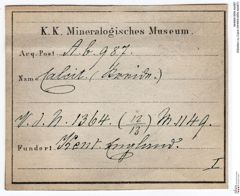 K. K. Mineralogisches Museum.
Acq. Post. A. b. 987.
Name Calcit. (Kreide.)
V. d. N. 1364. (12/13) M. 1149.
Fundort. Kent. England.
I